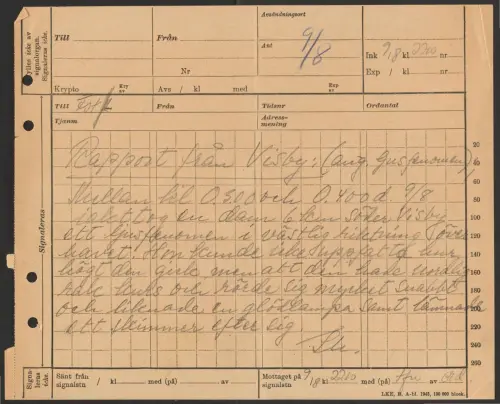 Fylles icke av
signalorgan.
Signalerna icke.
Till
Från
Avsändningsort
Nr
Ant
9/8
Ink 9/8 kl 2200 nr
Exp / kl nr
Krypto
Kry av
Avs / kl med
Exp av
Till
Från
Tidsnr
Ordantal
Tjänsm
Adress-
mening
Signaleras
Rapport från Visby: (ang. ljusfenomen)
Mellan kl 0.300 och 0.400 d. 9/8
iakttog en dam 6 km söder Visby
ett ljusfenomen i västlig riktning över
havet. Hon kunde icke uppfatta hur
högt den gick men att den hade nordlig
kurs och rörde sig mycket snabbt
och liknade en glödlampa samt lämnade
ett skimmer efter sig.
20
40
60
80
100
120
140
160
180
200
220
240
260
Signa-
leras
icke.
Sänt från
signalstn / kl med (på) av
Mottaget på
signalstn 9/8 kl 2200 med (på) tfn av
LKE, B. A-tf. 1943, 100 000 block.